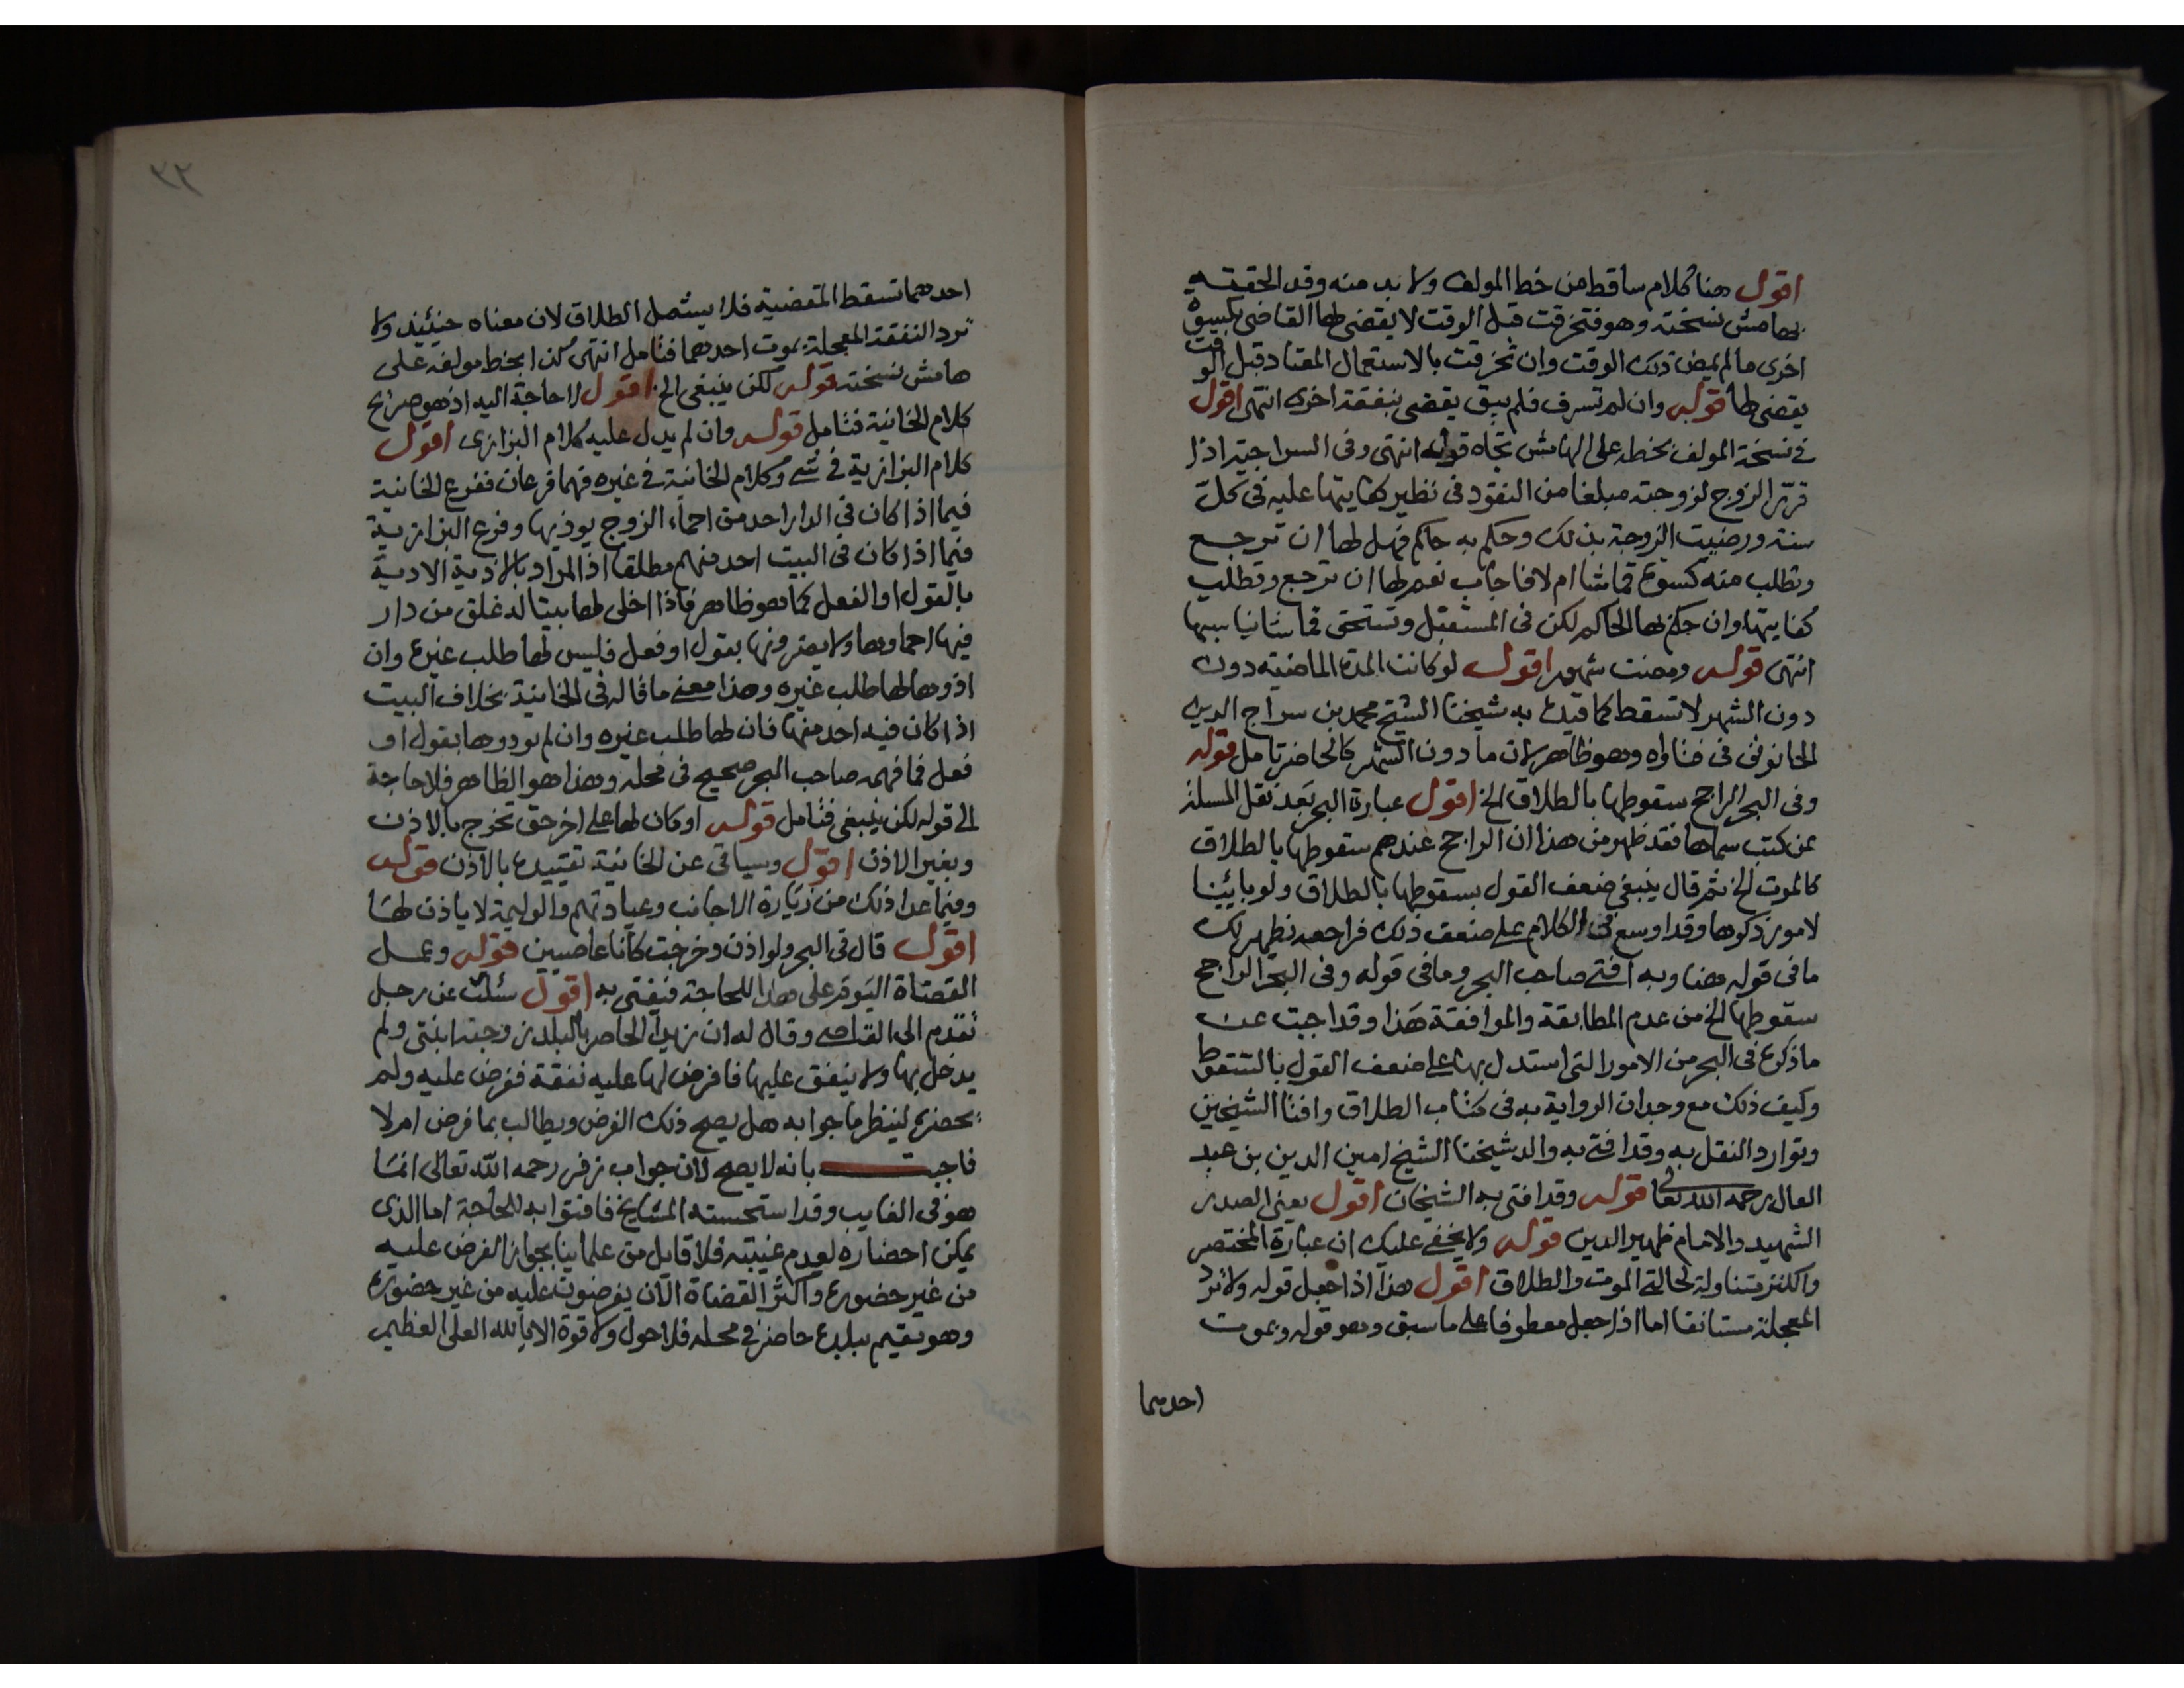 اقول هنا كلام ساقط من خط المولف ولا بد منه وقد الحقته
بهامش نسخته وهو فتخرقت قبل الوقت لا يقضى لها القاضى بكسوة
اخرى ما لم يمض ذلك الوقت وان تخرقت بالاستعمال المعتاد قبل الوقت
يقضى لها قوله وان لم تسرف فلم يبق يقضى بنفقة اخرى انتهى اقول
فى نسخة المولف بخطه على الهامش تجاه قوله انتهى وفى السراجية اذا
قرر الزوج لزوجته مبلغا من النقود فى نظير كفايتها عليه فى كل
سنة ورضيت الزوجة بذلك وحكم به حاكم فهل لها ان ترجع
وتطلب منه كسوة قماشا ام لا فاجاب نعم لها ان ترجع وتطلب
كفايتها وان حكم لها الحاكم لكن فى المستقبل وتستحق قماشا
انتهى قوله ومضت شهور اقول لو كانت المدة الماضية دون
دون الشهر لا تسقط كما قيده به شيخنا الشيخ محمد بن سراج الدين
الحانوتى فى فتاواه وهو ظاهر لان ما دون الشهر كالحاضر تامل قوله
وفى البحر الراجح سقوطها بالطلاق الخ اقول عبارة البحر بعد نقل المسئلة
عن كتب سماها فقد ظهر من هذا ان الراجح عندهم سقوطها بالطلاق
كالموت الخ ثم قال ينبغى ضعف القول بسقوطها بالطلاق ولو بائنا
لامور ذكرها وقد اوسع فى الكلام على ضعف ذلك فراجعه نظهر لك
ما فى قوله هنا وبه افتى صاحب البحر وما فى قوله وفى البحر الراجح
سقوطها الخ من عدم المطابقة والموافقة هذا وقد اجبت عن
ما ذكره فى البحر من الامور التى استدل بها على ضعف القول بالسقوط
وكيف ذلك مع وجدان الرواية به فى كتاب الطلاق وافتا الشيخين
وتوارد النقل به وقد افتى به والد شيخنا الشيخ امين الدين بن عبد
العال رحمه الله تعالى قوله وقد افتى به الشيخان اقول يعنى الصدر
الشهيد والامام ظهير الدين قوله ولا يخفى عليك ان عبارة المختصر
والكنز متناولة لحالة الموت والطلاق اقول هذا اذا جعل قوله ولا ترد
المعجلة مستانفا اما اذا جعل معطوفا على ما سبق وهو قوله وبموت
احدهما
٣٢
احدهما تسقط المقضية فلا يشمل الطلاق لان معناه حينئيذ ولا
ترد النفقة المعجلة بموت احدهما فتامل انتهى كذا بخط مولفه على
هامش نسخته قوله لكن ينبغى الخ اقول لا حاجة اليه اذ هو صريح
كلام الخانية فتامل قوله وان لم يدل عليه كلام البزازى اقول
كلام البزازية فى شى وكلام الخانية فى غيره فهما فرعان ففرع الخانية
فيما اذا كان فى الدار احد من احماء الزوج يوذيها وفرع البزازية
فيما اذا كان فى البيت احد منهم مطلقا اذ المراد بالاذية الاذية
بالقول او الفعل كما هو ظاهر فاذا اخلى لها بيتا له غلق من دار
فيها احماوها ولا يضرونها بقول او فعل فليس لها طلب غيره وان
اذوها لها طلب غيره وهذا معنى ما قاله فى الخانية بخلاف البيت
اذا كان فيه احد منهم فان لها طلب غيره وان لم يوذوها بقول او
فعل فما فهمه صاحب البحر صحيح فى محله وهذا هو الظاهر فلا حاجة
الى قوله لكن ينبغى فتامل قوله او كان لها على اخر حق تخرج بالاذن
وبغير الاذن اقول وسياتى عن الخانية تقييده بالاذن قوله
وفيما عدا ذلك من زيارة الاجانب وعيادتهم والوليمة لا ياذن لها
اقول قال فى البحر ولو اذن وخرجت كانا عاصيين قوله وعمل
القضاة اليوم على هذا للحاجة فيفتى به اقول سئلت عن رجل
تقدم الى القاضى وقال له ان زيدا الحاضر بالبلد زوجته ابنتى ولم
يدخل بها ولا ينفق عليها فافرض لها عليه نفقة ففرض عليه ولم
يحضره لينظر ما جوابه هل يصح ذلك الفرض ويطالب بما فرض ام لا
فاجبت بانه لا يصح لان جواب زفر رحمه الله تعالى انما
هو فى الغايب وقد استحسنه المشايخ فافتوا به للحاجة اما الذى
يمكن احضاره لعدم غيبته فلا قايل من علماينا بجواز الفرض عليه
من غير حضوره واكثر القضاة الان يفرضون عليه من غير حضوره
وهو مقيم ببلده حاضر فى محله فلا حول ولا قوة الا بالله العلى العظيم